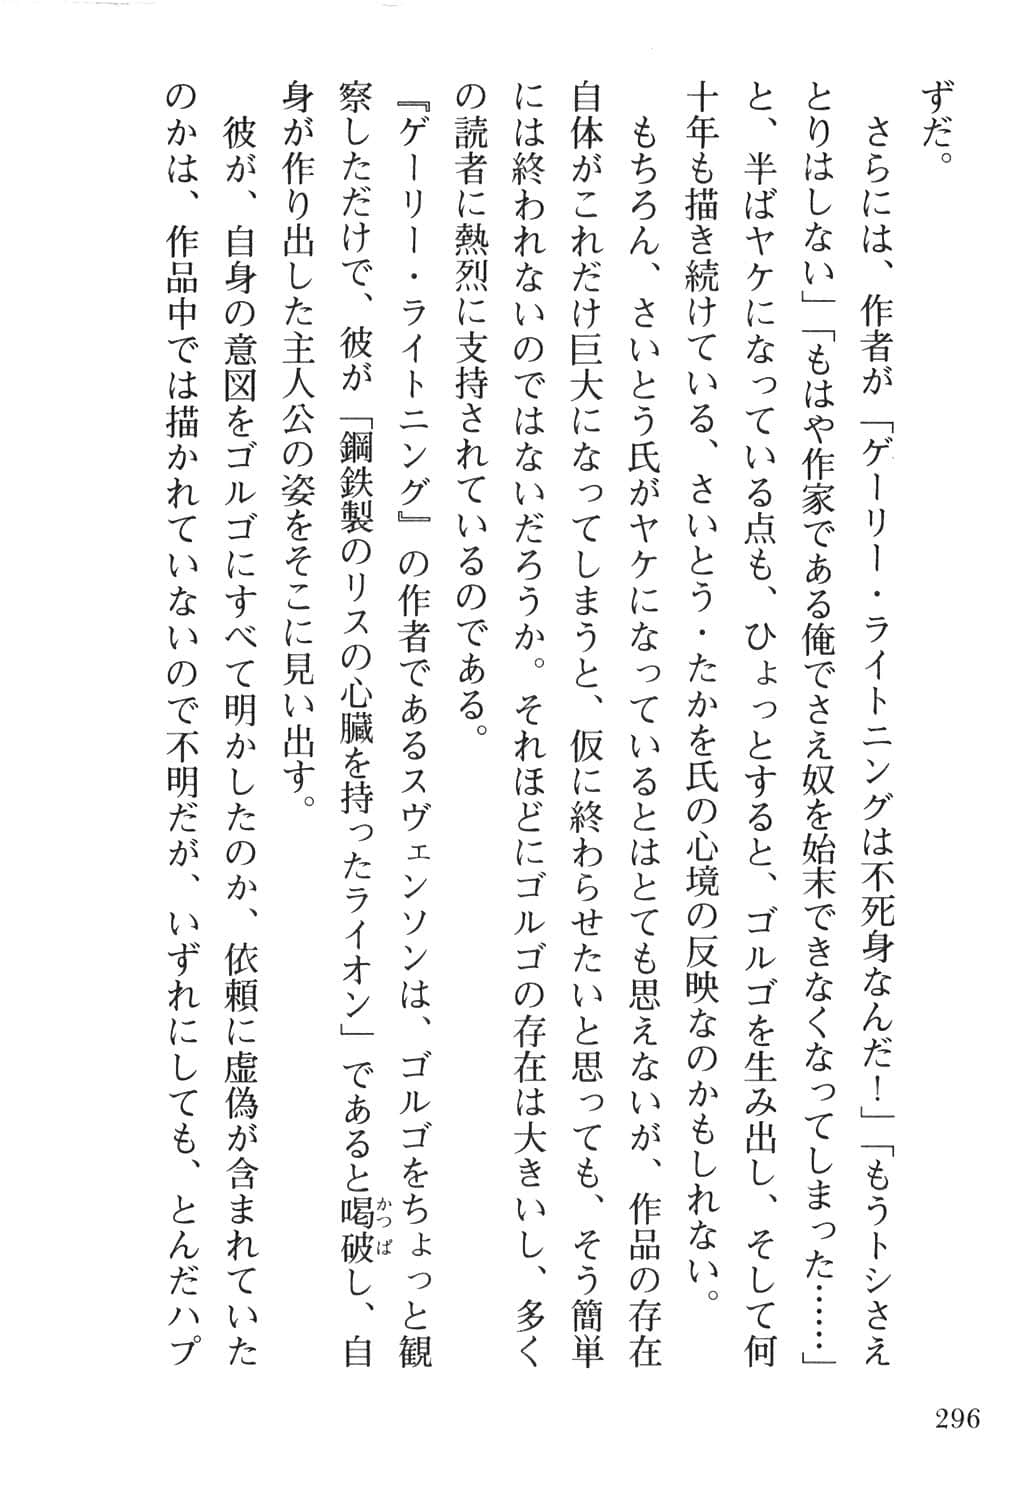 ずだ。
　さらには、作者が「ゲーリー・ライトニングは不死身なんだ！」「もうトシさえ
とりはしない」「もはや作家である俺でさえ奴を始末できなくなってしまった……」
と、半ばヤケになっている点も、ひょっとすると、ゴルゴを生み出し、そして何
十年も描き続けている、さいとう・たかを氏の心境の反映なのかもしれない。
　もちろん、さいとう氏がヤケになっているとはとても思えないが、作品の存在
自体がこれだけ巨大になってしまうと、仮に終わらせたいと思っても、そう簡単
には終われないのではないだろうか。それほどにゴルゴの存在は大きいし、多く
の読者に熱烈に支持されているのである。
『ゲーリー・ライトニング』の作者であるスヴェンソンは、ゴルゴをちょっと観
察しただけで、彼が「鋼鉄製のリスの心臓を持ったライオン」であると喝破かつぱし、自
身が作り出した主人公の姿をそこに見い出す。
　彼が、自身の意図をゴルゴにすべて明かしたのか、依頼に虚偽が含まれていた
のかは、作品中では描かれていないので不明だが、いずれにしても、とんだハプ
296